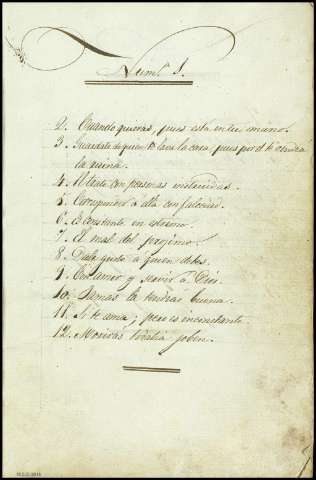 Núm.º 1.
2. Cuando quieras, pues está en tu mano.
3. Guardate de quien te lava la cara, pues por el te vendrá
la ruina.
4. Al trato con personas instruidas.
5. Corresponder a ella con
6. Es constante en estremo.
7. El mal del projimo.
8. Dale gusto á quien debes.
9. En amar y servir á Dios.
10. Jamas la tendras buena.
11. Si te ama; pero es inconstante.
12. Morirás todavia joben.